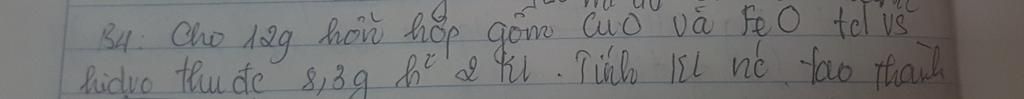 B4: Cho 12g hỗn hợp gồm CuO và FeO td vs
hidro thu đc 8,3g h² 2 kl. Tính kl nc tạo thành